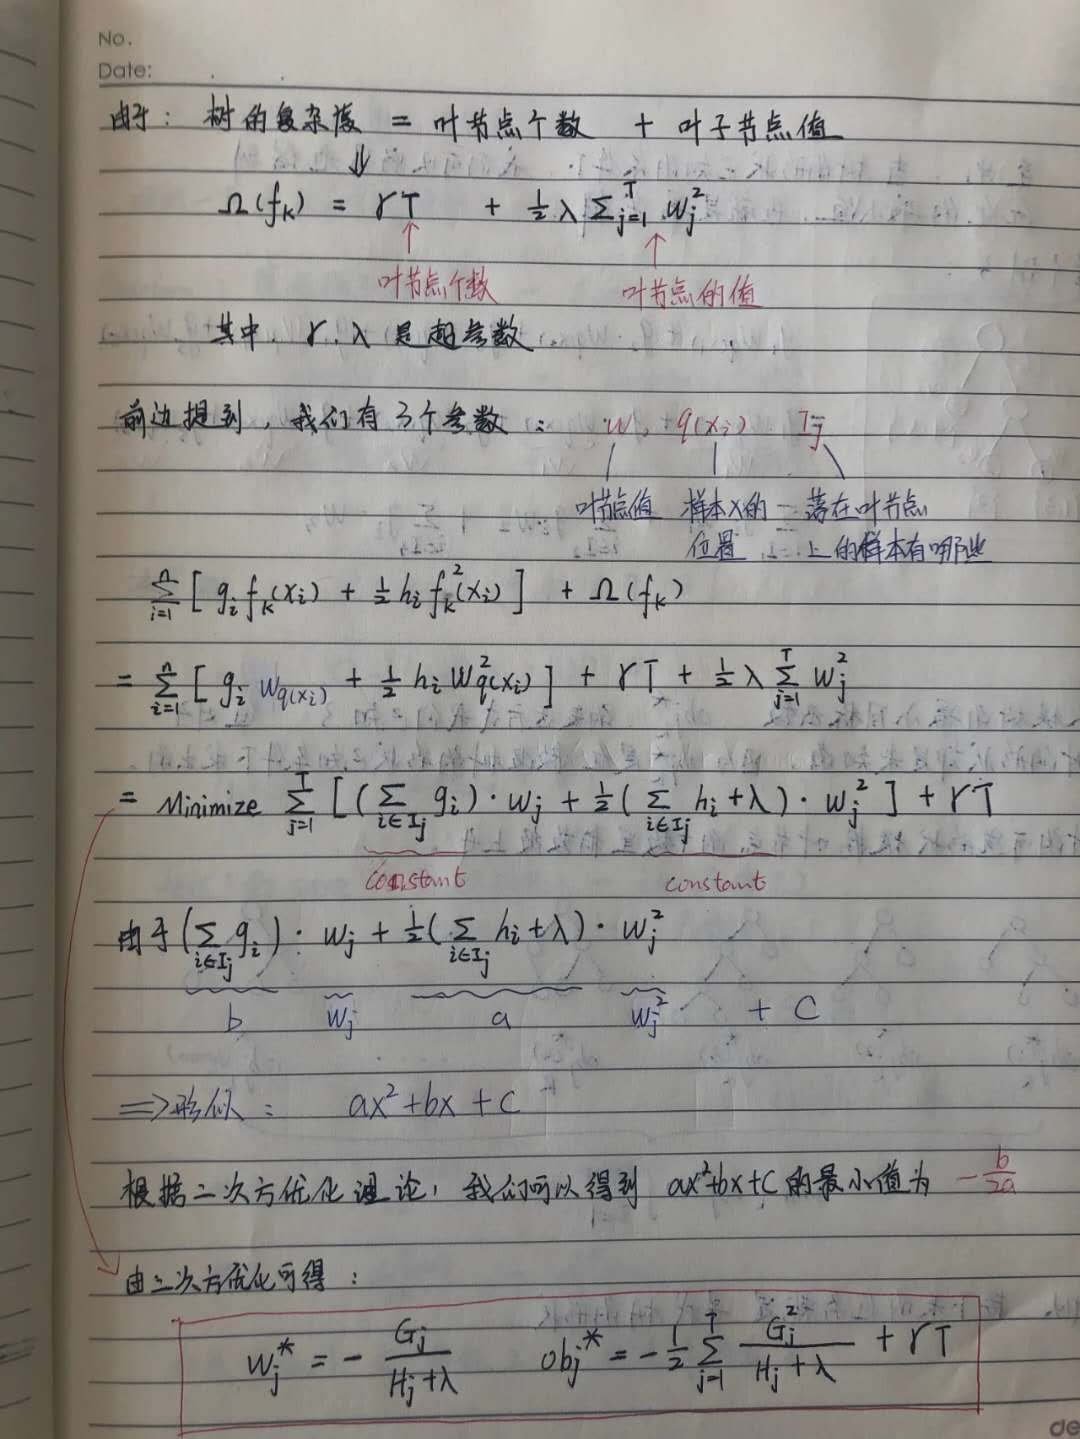 No.
Date:
由于： 树的复杂度 = 叶节点个数 + 叶子节点值
⇓
Ω(fₖ) = γT + ½ λ Σⱼ₌₁ᵀ wⱼ²
↑ ↑
叶节点个数 叶节点的值
其中， γ、λ 是超参数
前边提到，我们有3个参数： w, q(xᵢ) Iⱼ
叶节点值 样本X的 落在叶节点
位置 上的样本有哪些
Σᵢ₌₁ⁿ [ gᵢ fₖ(xᵢ) + ½ hᵢ fₖ²(xᵢ) ] + Ω(fₖ)
= Σᵢ₌₁ⁿ [ gᵢ w_q(xᵢ) + ½ hᵢ w²_q(xᵢ) ] + γT + ½ λ Σⱼ₌₁ᵀ wⱼ²
= Minimize Σⱼ₌₁ᵀ [ ( Σ_{i∈Iⱼ} gᵢ ) · wⱼ + ½ ( Σ_{i∈Iⱼ} hᵢ + λ ) · wⱼ² ] + γT
constant constant
由于 ( Σ_{i∈Iⱼ} gᵢ ) · wⱼ + ½ ( Σ_{i∈Iⱼ} hᵢ + λ ) · wⱼ²
b wⱼ a wⱼ² + C
⇒ 形似： ax² + bx + c
根据二次方优化理论，我们可以得到 ax²+bx+c 的最小值为 -b/2a
由二次方优化可得：
wⱼ* = - Gⱼ / (Hⱼ + λ) obj* = -½ Σⱼ₌₁ᵀ Gⱼ² / (Hⱼ + λ) + γT
de